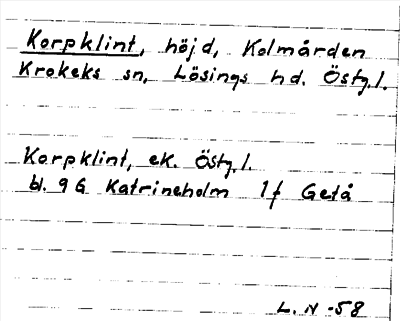 Korpklint, höjd, Kolmården
Krokeks sn, Lösings hd. Östg.l.
Korpklint, ek. Östg.l.
bl. 9 G Katrineholm 1f Getå
L. N -58